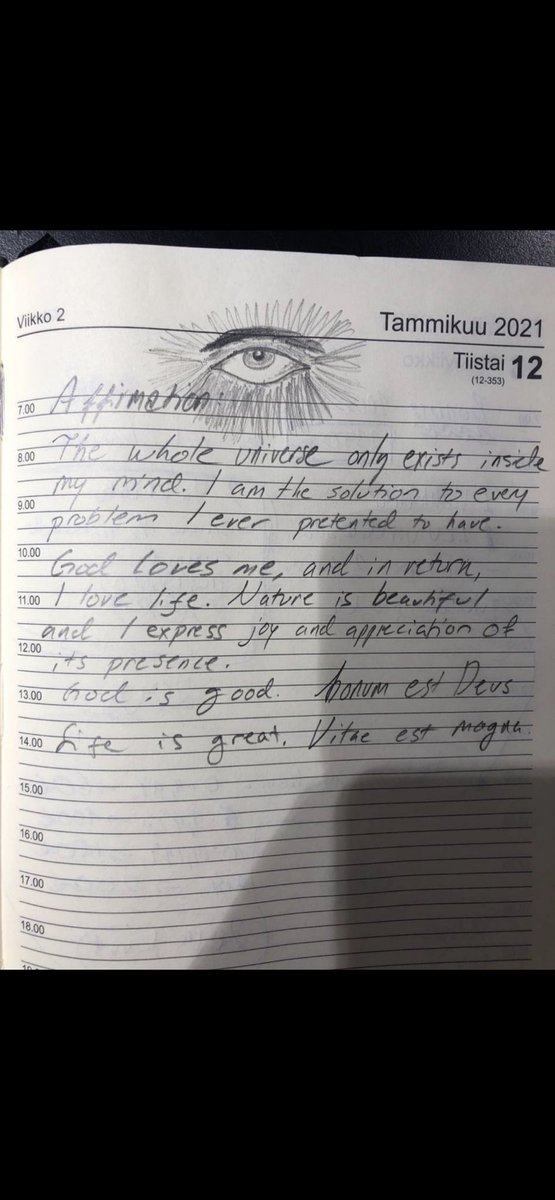 Viikko 2
Tammikuu 2021
Tiistai 12
(12-353)
7.00 Affirmation:
8.00 The whole universe only exists inside
my mind. I am the solution to every
9.00
problem I ever pretented to have.
10.00
God loves me, and in return,
11.00 I love life. Nature is beautiful
and I express joy and appreciation of
12.00
its presence.
13.00 God is good. bonum est Deus
14.00 Life is great. Vitae est magna.
15.00
16.00
17.00
18.00